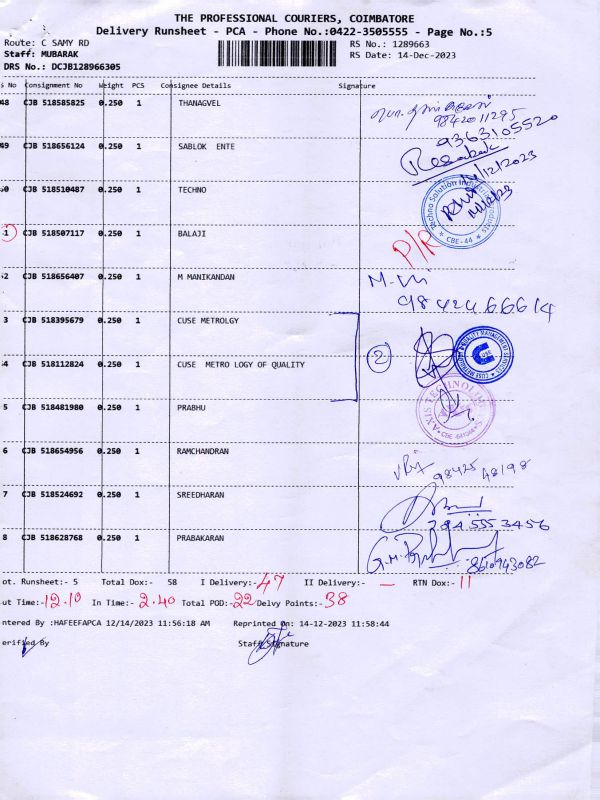 THE PROFESSIONAL COURIERS, COIMBATORE
Delivery Runsheet - PCA - Phone No.:0422-3505555 - Page No.:5
Route: C SAMY RD RS No.: 1289663
Staff: MUBARAK RS Date: 14-Dec-2023
DRS No.: DCJB128966305
s No Consignment No Weight PCS Consignee Details Signature
48 CJB 518585825 0.250 1 THANAGVEL
9842011295
49 CJB 518656124 0.250 1 SABLOK ENTE 9363105520
/12/2023
50 CJB 518510487 0.250 1 TECHNO
Techno Solution
CBE-44
1 CJB 518507117 0.250 1 BALAJI P/R
52 CJB 518656407 0.250 1 M MANIKANDAN
9842466614
3 CJB 518395679 0.250 1 CUSE METROLGY
2
54 CJB 518112824 0.250 1 CUSE METRO LOGY OF QUALITY
5 CJB 518481980 0.250 1 PRABHU
AXIS TECHNOLOGIES
6 CJB 518654956 0.250 1 RAMCHANDRAN
98425 48198
7 CJB 518524692 0.250 1 SREEDHARAN
8 CJB 518628768 0.250 1 PRABAKARAN
8610943082
ot. Runsheet:- 5 Total Dox:- 58 I Delivery:- 47 II Delivery:- — RTN Dox:- 11
ut Time:- 12.10 In Time:- 2.40 Total POD:- 22 Delvy Points:- 38
ntered By :HAFEEFAPCA 12/14/2023 11:56:18 AM Reprinted On: 14-12-2023 11:58:44
erified By Staff Signature